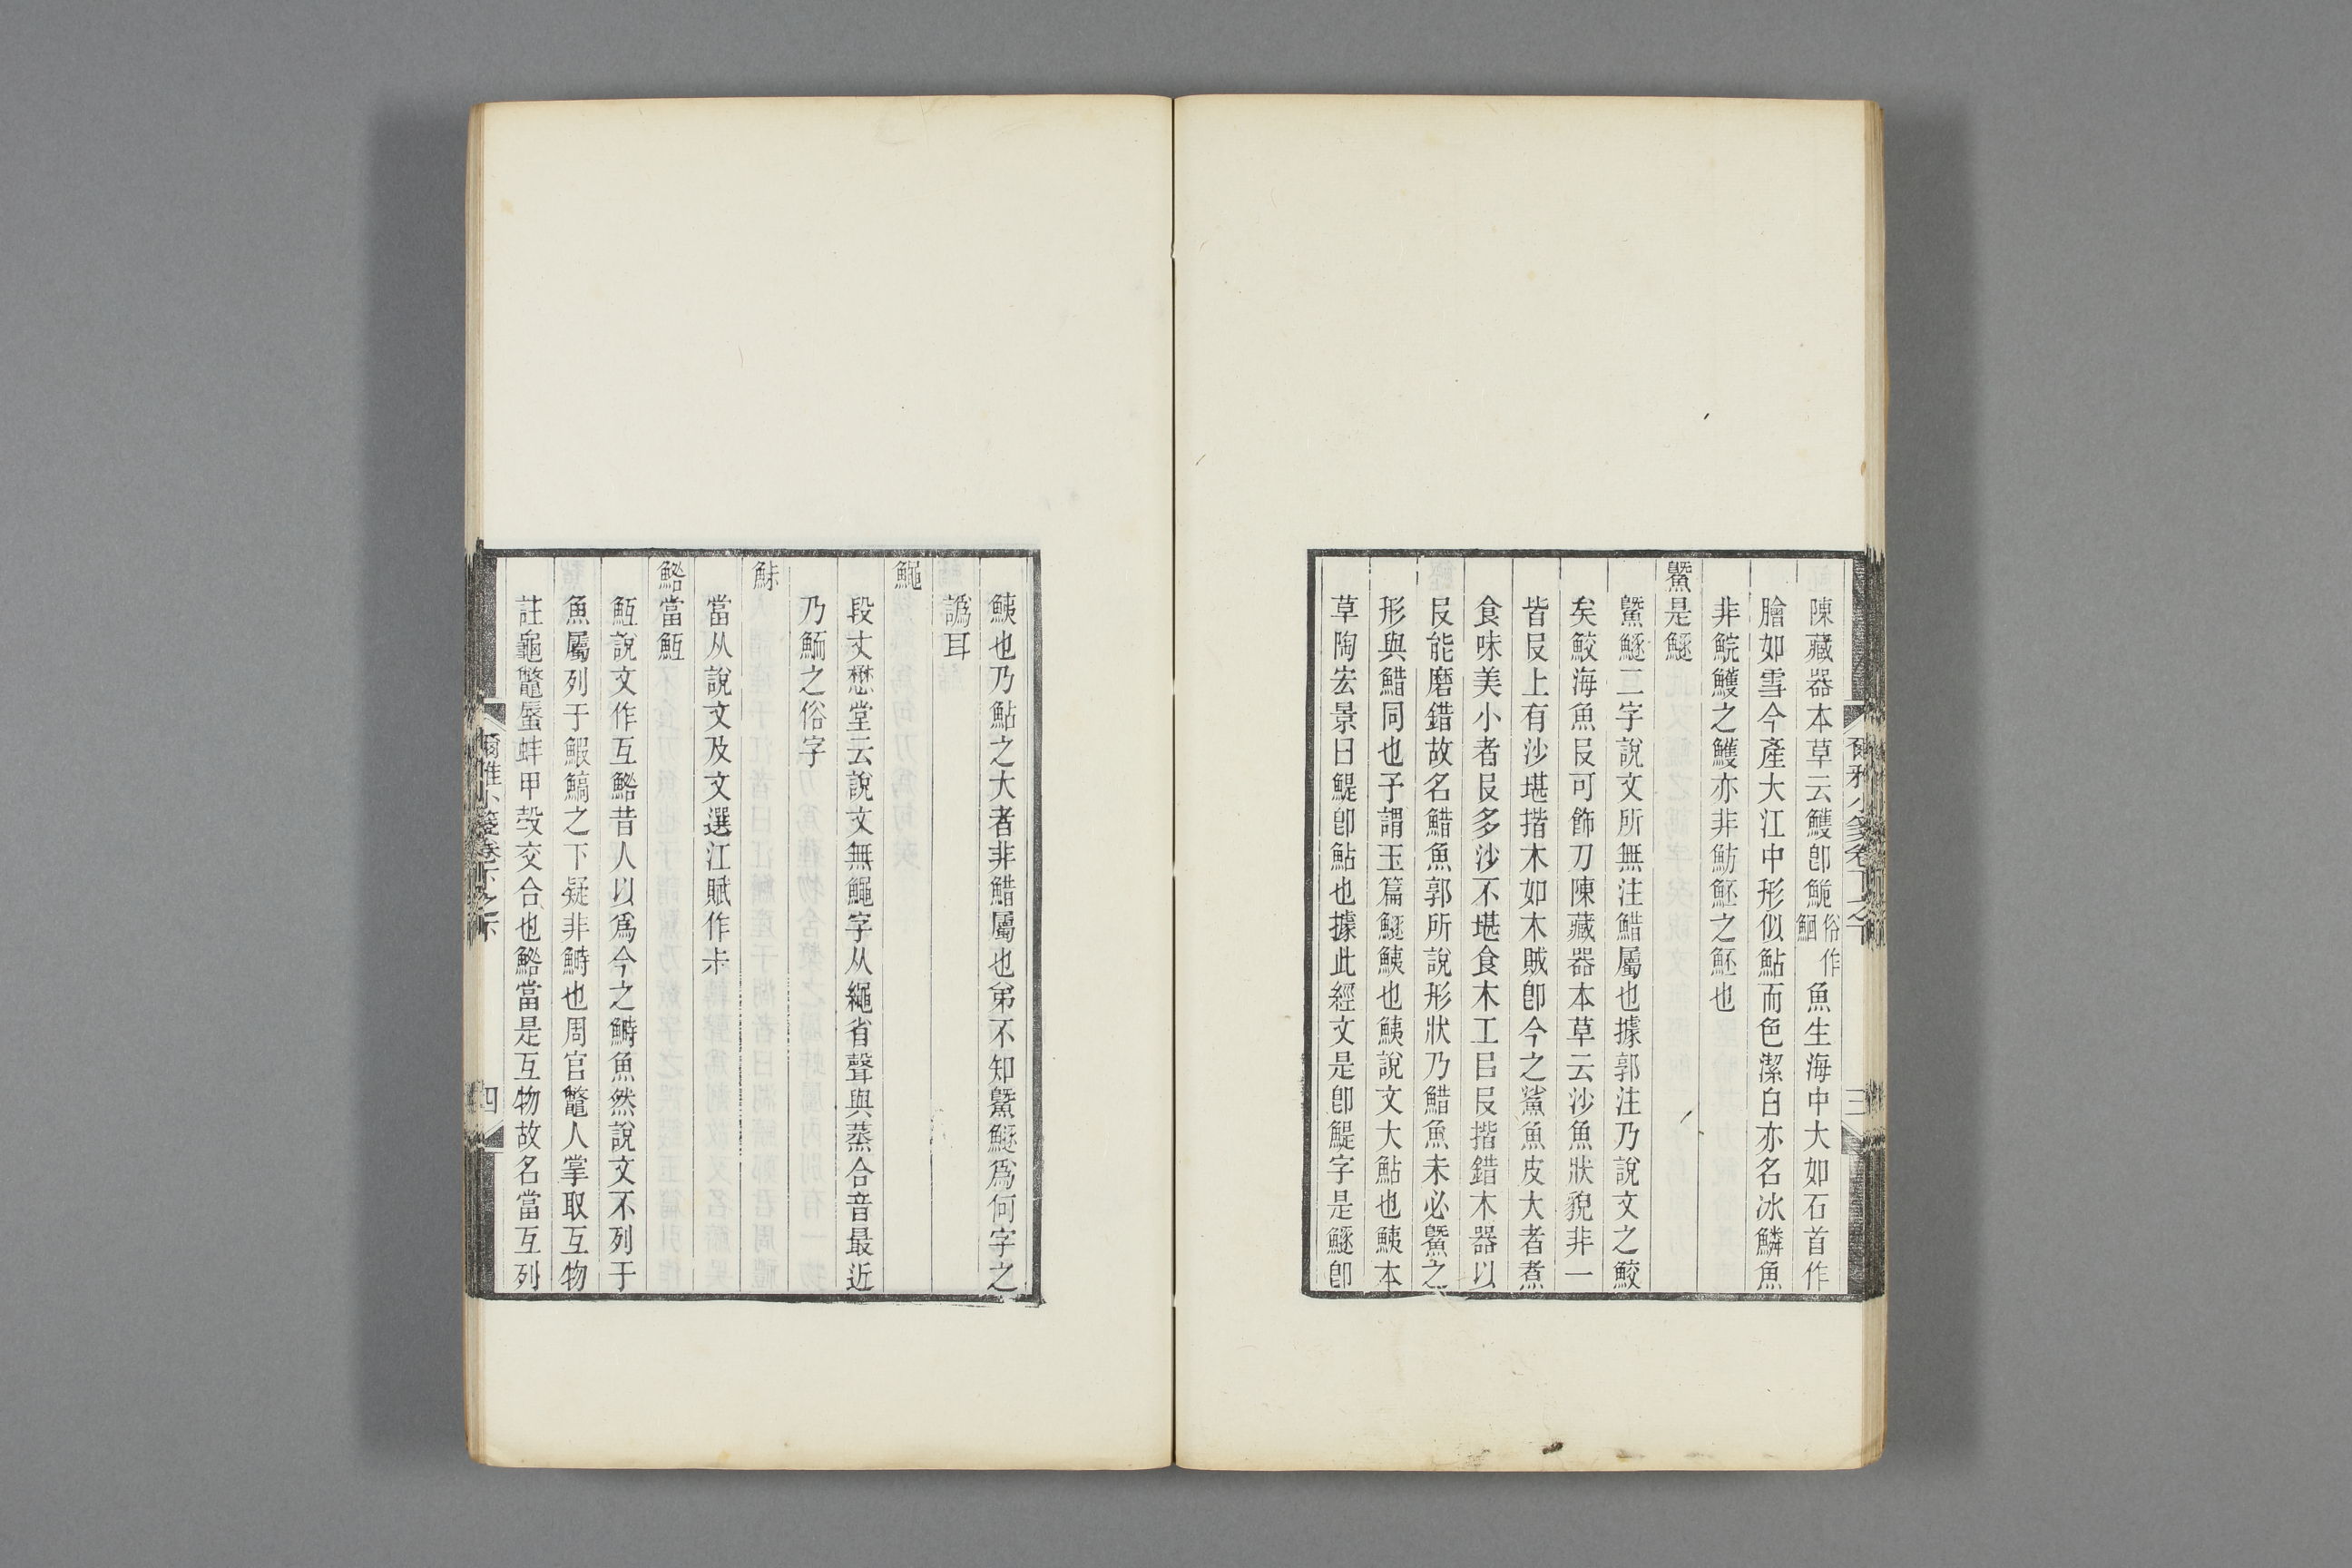 陳藏器本草云鱯卽鮠俗作鮰魚生海中大如石首作
膾如雪今產大江中形似鮎而色潔白亦名冰鱗魚
非鯇鱯之鱯亦非魴魾之魾也
鱀是鱁
鱀鱁二字說文所無注䱜屬也據郭注乃說文之鮫
矣鮫海魚皮可飾刀陳藏器本草云沙魚狀貌非一
皆皮上有沙堪揩木如木賊卽今之鯊魚皮大者煮
食味美小者皮多沙不堪食木工㠯皮揩錯木器以
皮能磨錯故名䱜魚郭所說形狀乃䱜魚未必鱀之
形與䱜同也予謂玉篇鱁鮧也鮧說文大鮎也鮧本
草陶宏景曰鯷卽鮎也據此經文是卽鯷字是鱁卽
爾雅小箋卷下之下
三
鮧也乃鮎之大者非䱜屬也弟不知鱀鱁爲何字之
譌耳
鱦
段丈懋堂云說文無鱦字从繩省聲與蒸合音最近
乃鮞之俗字
鮛
當从說文及文選江賦作尗
鮥當魱
魱說文作互鮥昔人以爲今之鰣魚然說文不列于
魚屬列于鰕鰝之下疑非鰣也周官鼈人掌取互物
註龜鼈蜃蚌甲㱿交合也鮥當是互物故名當互列
爾雅小箋卷下之下
四